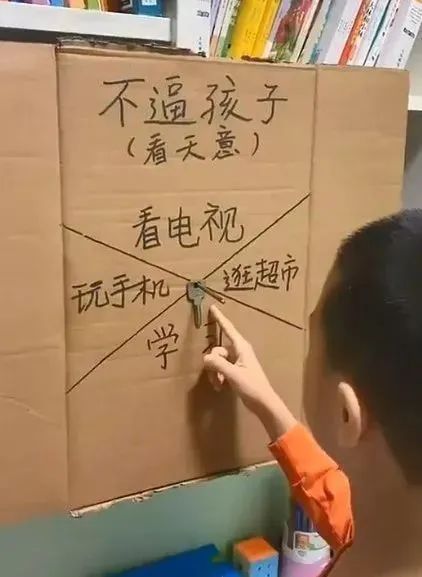 不逼孩子
(看天意)
看电视
玩手机
逛超市
学习